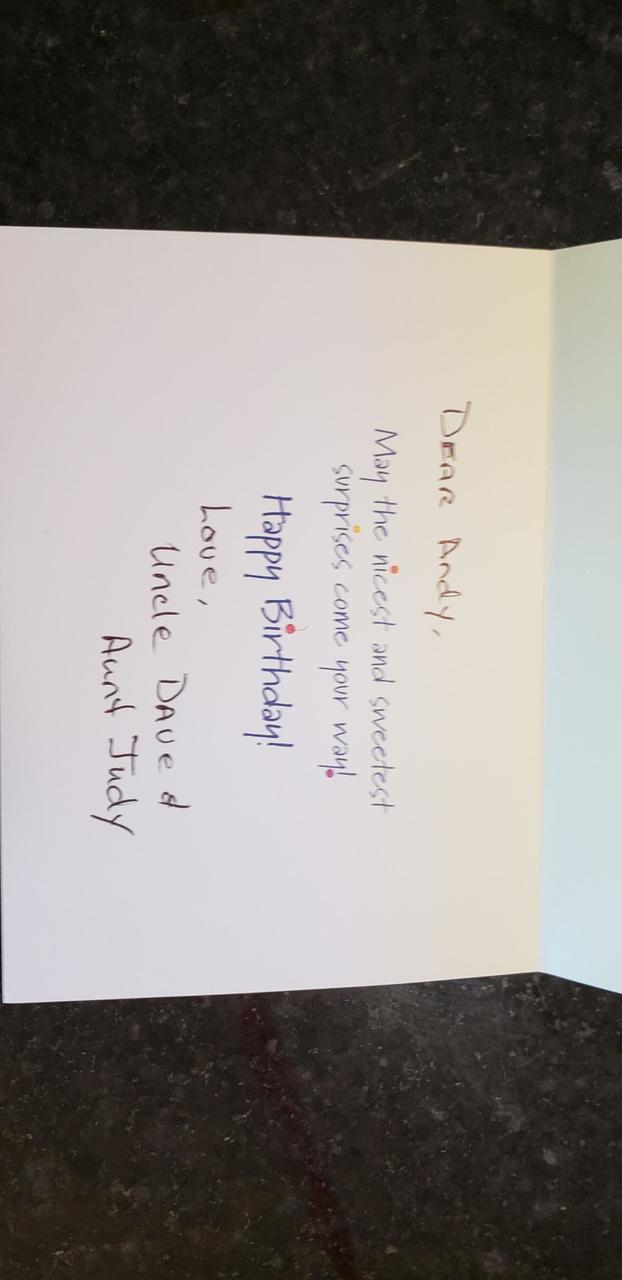 Dear Andy,
May the nicest and sweetest
surprises come your way!
Happy Birthday!
Love,
Uncle Dave &
Aunt Judy